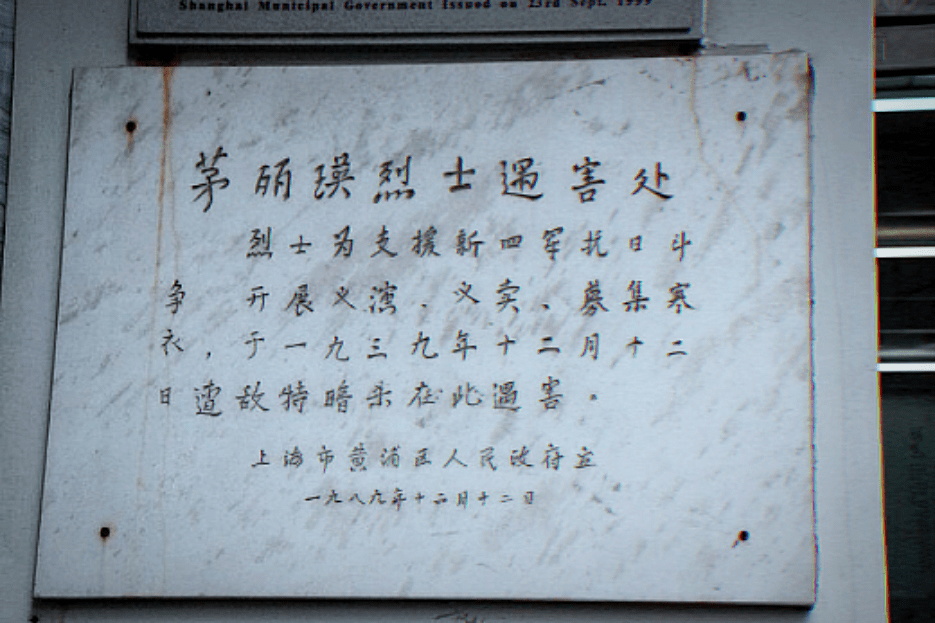 Shanghai Municipal Government Issued on 23rd Sept. 1999
茅丽瑛烈士遇害处
烈士为支援新四军抗日斗
争 开展义演、义卖、募集寒
衣,于一九三九年十二月十二
日遭敌特暗杀在此遇害。
上海市黄浦区人民政府立
一九八九年十二月十二日